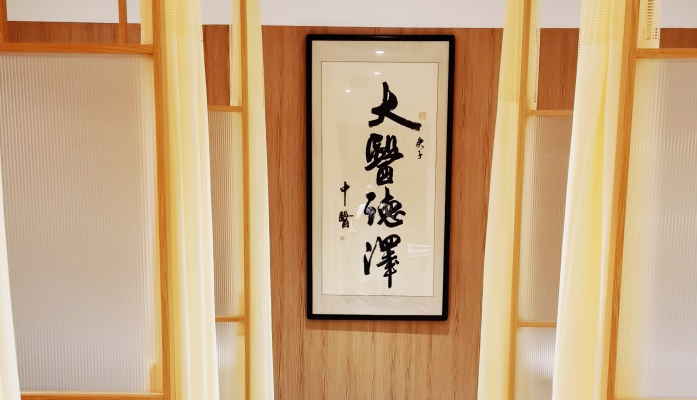 庚子
大醫德澤
中醫